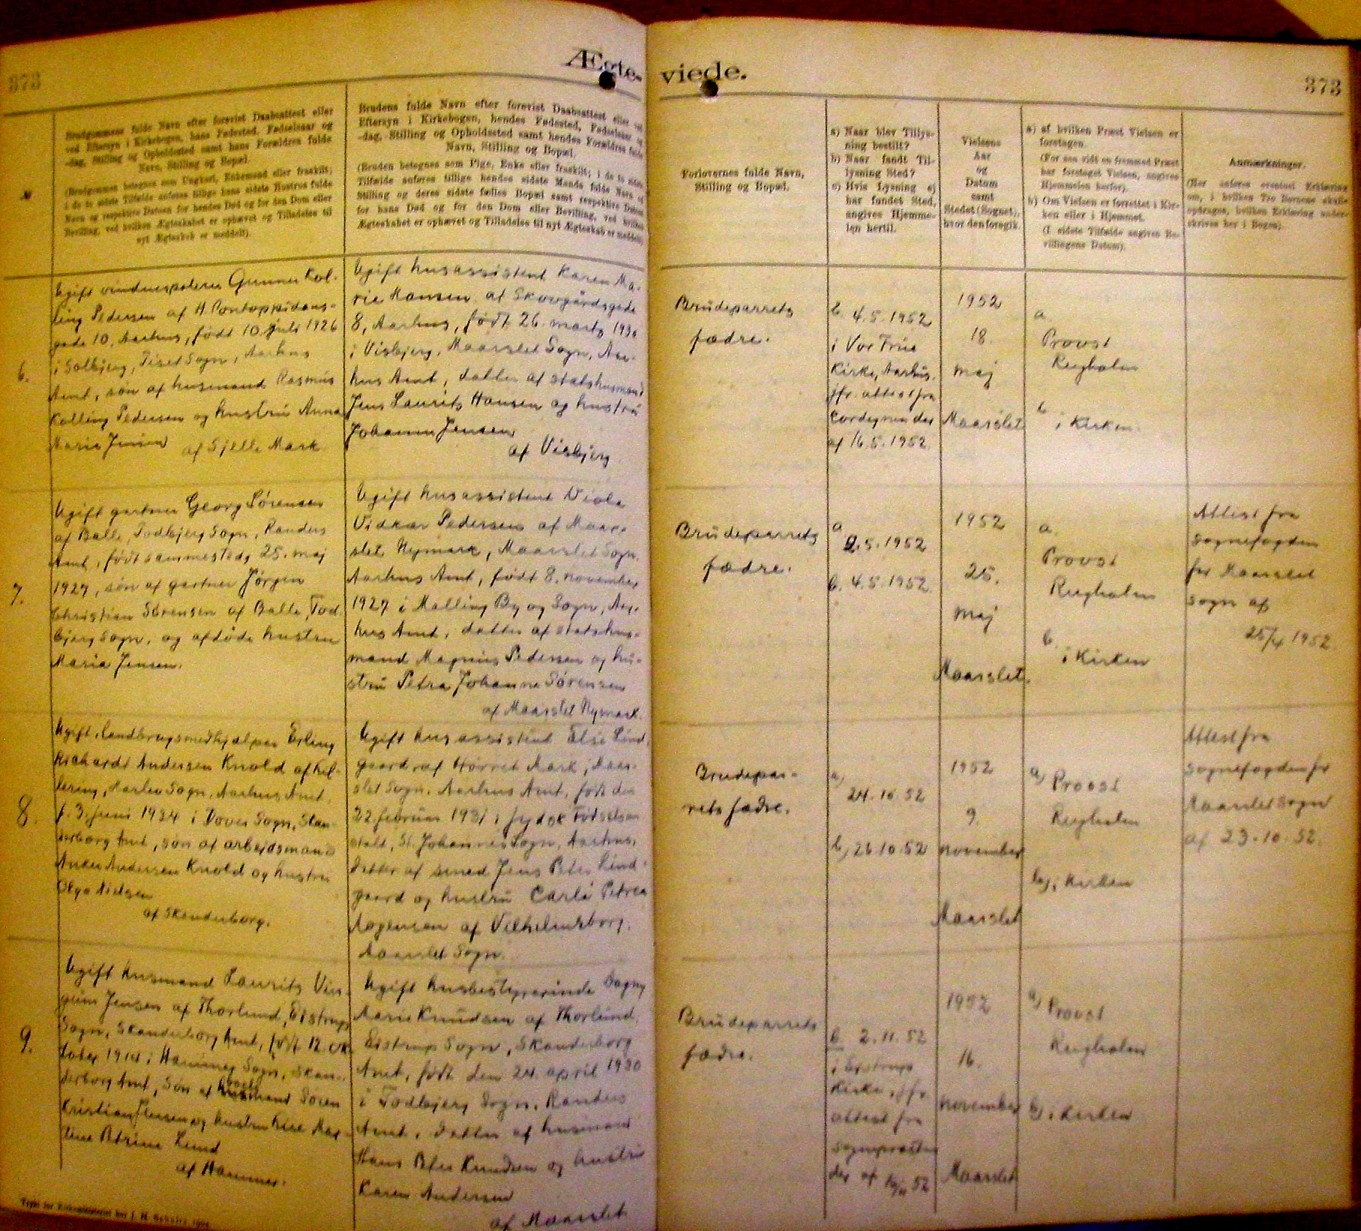 373
Ægte-
viede.
373
№
Brudgommens fulde Navn efter forevist Daabsattest eller
ved Eftersyn i Kirkebogen, hans Fødested, Fødselsaar og
-dag, Stilling og Opholdssted samt hans Forældres fulde
Navn, Stilling og Bopæl.
(Brudgommen betegnes som Ungkarl, Enkemand eller fraskilt;
i de to sidste Tilfælde anføres tillige hans sidste Hustrus fulde
Navn og respektive Datoen for hendes Død og for den Dom eller
Bevilling, ved hvilken Ægteskabet er ophævet og Tilladelse til
nyt Ægteskab er meddelt).
Brudens fulde Navn efter forevist Daabsattest eller ved
Eftersyn i Kirkebogen, hendes Fødested, Fødselsaar og
-dag, Stilling og Opholdssted samt hendes Forældres fulde
Navn, Stilling og Bopæl.
(Bruden betegnes som Pige, Enke eller fraskilt; i de to sidste
Tilfælde anføres tillige hendes sidste Mands fulde Navn og
Stilling og deres sidste fælles Bopæl samt respektive Datoen
for hans Død og for den Dom eller Bevilling, ved hvilken
Ægteskabet er ophævet og Tilladelse til nyt Ægteskab er meddelt).
Forlovernes fulde Navn,
Stilling og Bopæl.
a) Naar blev Tillys-
ning bestilt?
b) Naar fandt Til-
lysning Sted?
c) Hvis Lysning ej
har fundet Sted,
angives Hjemme-
len hertil.
Vielsens
Aar
og
Datum
samt
Stedet (Sognet),
hvor den foregik.
a) af hvilken Præst Vielsen er
foretagen.
(For saa vidt en fremmed Præst
har foretaget Vielsen, angives
Hjemmelen herfor).
b) Om Vielsen er forrettet i Kir-
ken eller i Hjemmet.
(I sidste Tilfælde angives Be-
villingens Datum).
Anmærkninger.
(Her anføres eventuel Erklæring
om, i hvilken Tro Børnene skulle
opdrages, hvilken Erklæring under-
skrives her i Bogen).
6.
Ugift vinduespolerer Gunner Kol-
ling Pedersen af H. Pontoppidans-
gade 10, Aarhus, født 10. juli 1926
i Solbjerg, Tiset Sogn, Aarhus
Amt, søn af husmand Rasmus
Kolling Pedersen og hustru Anna
Marie Jensen af Sjelle Mark
Ugift husassistent Karen Ma-
rie Hansen af Skovgaardsgade
8, Aarhus, født 26. marts 1930
i Visbjerg, Maarslet Sogn, Aar-
hus Amt, datter af statshusmand
Jens Laurits Hansen og hustru
Johanne Jensen
af Visbjerg
Brudeparrets
fædre.
b. 4.5.1952
i Vor Frue
Kirke, Aarhus.
jfr. attest fra
Cordegnen der
af 16.5.1952.
1952
18.
maj
Maarslet
a.
Provst
Rugholm
b.
i Kirken.
7.
Ugift gartner Georg Sørensen
af Balle, Todbjerg Sogn, Randers
Amt, født sammesteds 25. maj
1927, søn af gartner Jørgen
Christian Sørensen af Balle, Tod-
bjerg Sogn, og afdøde hustru
Maria Jensen.
Ugift husassistent Viola
Vidkær Pedersen af Maar-
slet Nymark, Maarslet Sogn
Aarhus Amt, født 8. november
1927 i Malling By og Sogn, Aar-
hus Amt, datter af statshus-
mand Magnus Pedersen og hu-
stru Petra Johanne Sørensen
af Maarslet Nymark.
Brudeparrets
fædre.
a
2.5.1952
b. 4.5.1952.
1952
25.
maj
Maarslet.
a.
Provst
Rugholm
b.
i Kirken
Attest fra
sognefogden
for Maarslet
sogn af
25/4 1952.
8.
Ugift landbrugsmedhjælper Erling
Richardt Andersen Knold af Hel-
lering, Harlev Sogn, Aarhus Amt,
f. 3. juni 1924 i Dover Sogn, Skan-
derborg Amt, søn af arbejdsmand
Anders Andersen Knold og hustru
Olga Nielsen
af Skanderborg.
Ugift husassistent Else Lind-
gaard af Hørret Mark, Maar-
slet Sogn, Aarhus Amt, født den
22. februar 1931 i Jydsk Fødselsan-
stalt, St. Johannes Sogn, Aarhus,
datter af smed Jens Peter Lind-
gaard og hustru Carla Petrea
Mogensen af Vilhelmsborg.
Maarslet Sogn.
Brudepar-
rets fædre.
a)
24.10.52
b) 26.10.52
1952
9.
november
Maarslet
a) Provst
Rugholm
b) i Kirken
Attest fra
sognefogden for
Maarslet sogn
af 23-10-52.
9.
Ugift husmand Laurits
Jensen af Thorlund, Ejstrup
Sogn, Skanderborg Amt, født 12. ok-
tober 1914 i Hammer Sogn, Skan-
derborg Amt, søn af Søren
Kristian Jensen og hustru
Petrine Lund
af Hammer.
Ugift husbestyrerinde Dagny
Marie Knudsen af Thorlund,
Ejstrup Sogn, Skanderborg
Amt, født den 24. april 1930
i Todbjerg Sogn, Randers
Amt, datter af husmand
Hans Peter Knudsen og hustru
Karen Andersen
af Maarslet
Brudeparrets
fædre.
b. 2.11.52
i Ejstrup
Kirke, jfr.
attest fra
sognepræsten
der af 10/11 52
1952
16.
november
Maarslet
a) Provst
Rugholm
b) i Kirken